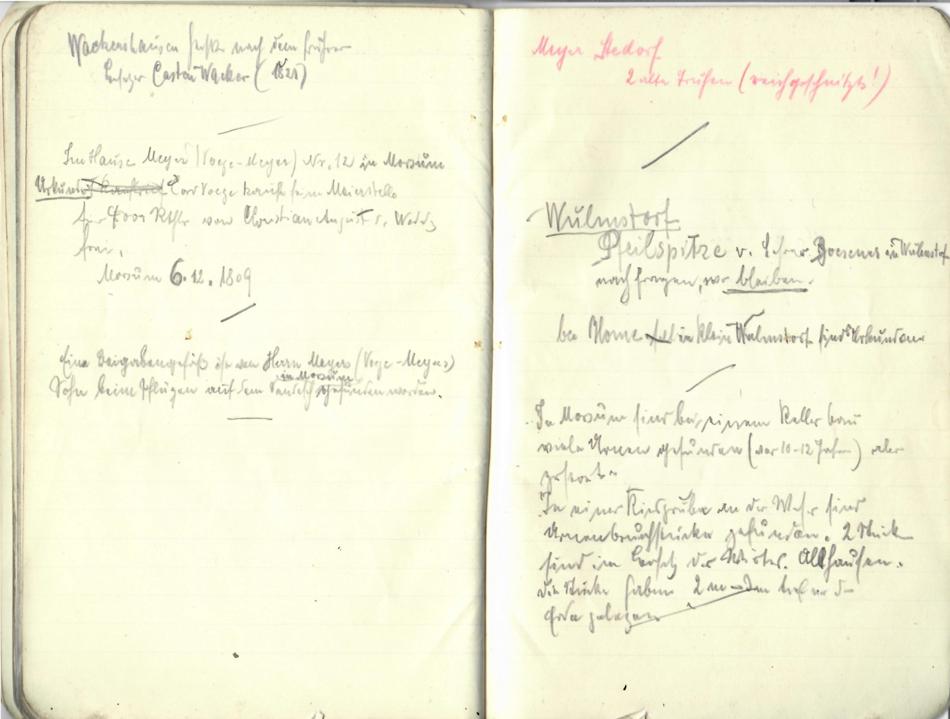 Wackershausen heißt nach dem frühren
Besitzer Casten Wacker (1821)
Im Hause Meyer (Voege-Meyer) Nr. 12 in Morsum
Urkunde Cord Voege kauft seine Meierstelle
für Rthlr von Christian August v.
frei.
Morsum 6.12.1809
Eine Beigabengefäß ist von Herrn Meyers (Voege-Meyers)
in Morsum
Sohn beim Pflügen auf dem gefunden worden.
Meyer Stedorf
2 alte Truhen (reichgeschnitzt!)
Wulmstorf
Pfeilspitze v. Lehrer in Wulmstorf
nachfragen, wo bleiben.
bei in Klein Wulmstorf sind Urkunden
In Morsum sind bei einem Kellerbau
viele Urnen gefunden (vor 10-12 Jahren) aber
zerstört.
In einer Kiesgrube an der Weser sind
Urnenbruchstücke gefunden. 2 Stück
sind im Besitz des Wirtes Allhausen.
die Stücke haben 2 m tief in der
Erde gelegen